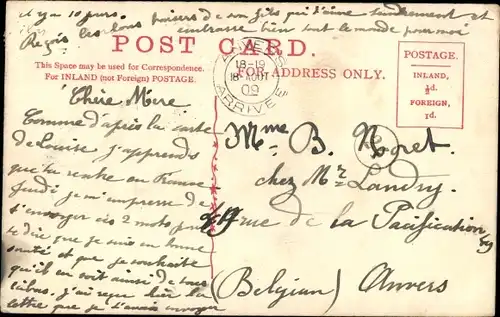 il y a 10 jours.
Reçois les bons baisers de son fils qui t'aime tendrement et
embrasse bien tout le monde pour moi
POST CARD.
This Space may be used for Correspondence.
For INLAND (not Foreign) POSTAGE.
FOR ADDRESS ONLY.
POSTAGE.
INLAND,
½d.
FOREIGN,
1d.
18-19
18 AOUT
09
ARRIVEE
Chère Mère
Comme d'après la carte
de Louise j'apprends
que tu rentre en France
Jeudi je m'empresse de
t'envoyer ces 2 mots pour
te dire que je suis en bonne
santé et que je souhaite
qu'il en soit ainsi de tous
là bas. j'ai reçu hier la
lettre que je t'avais envoyer
Mme B. Noret.
chez Mr Landry.
rue de la Pacification
(Belgium) Anvers